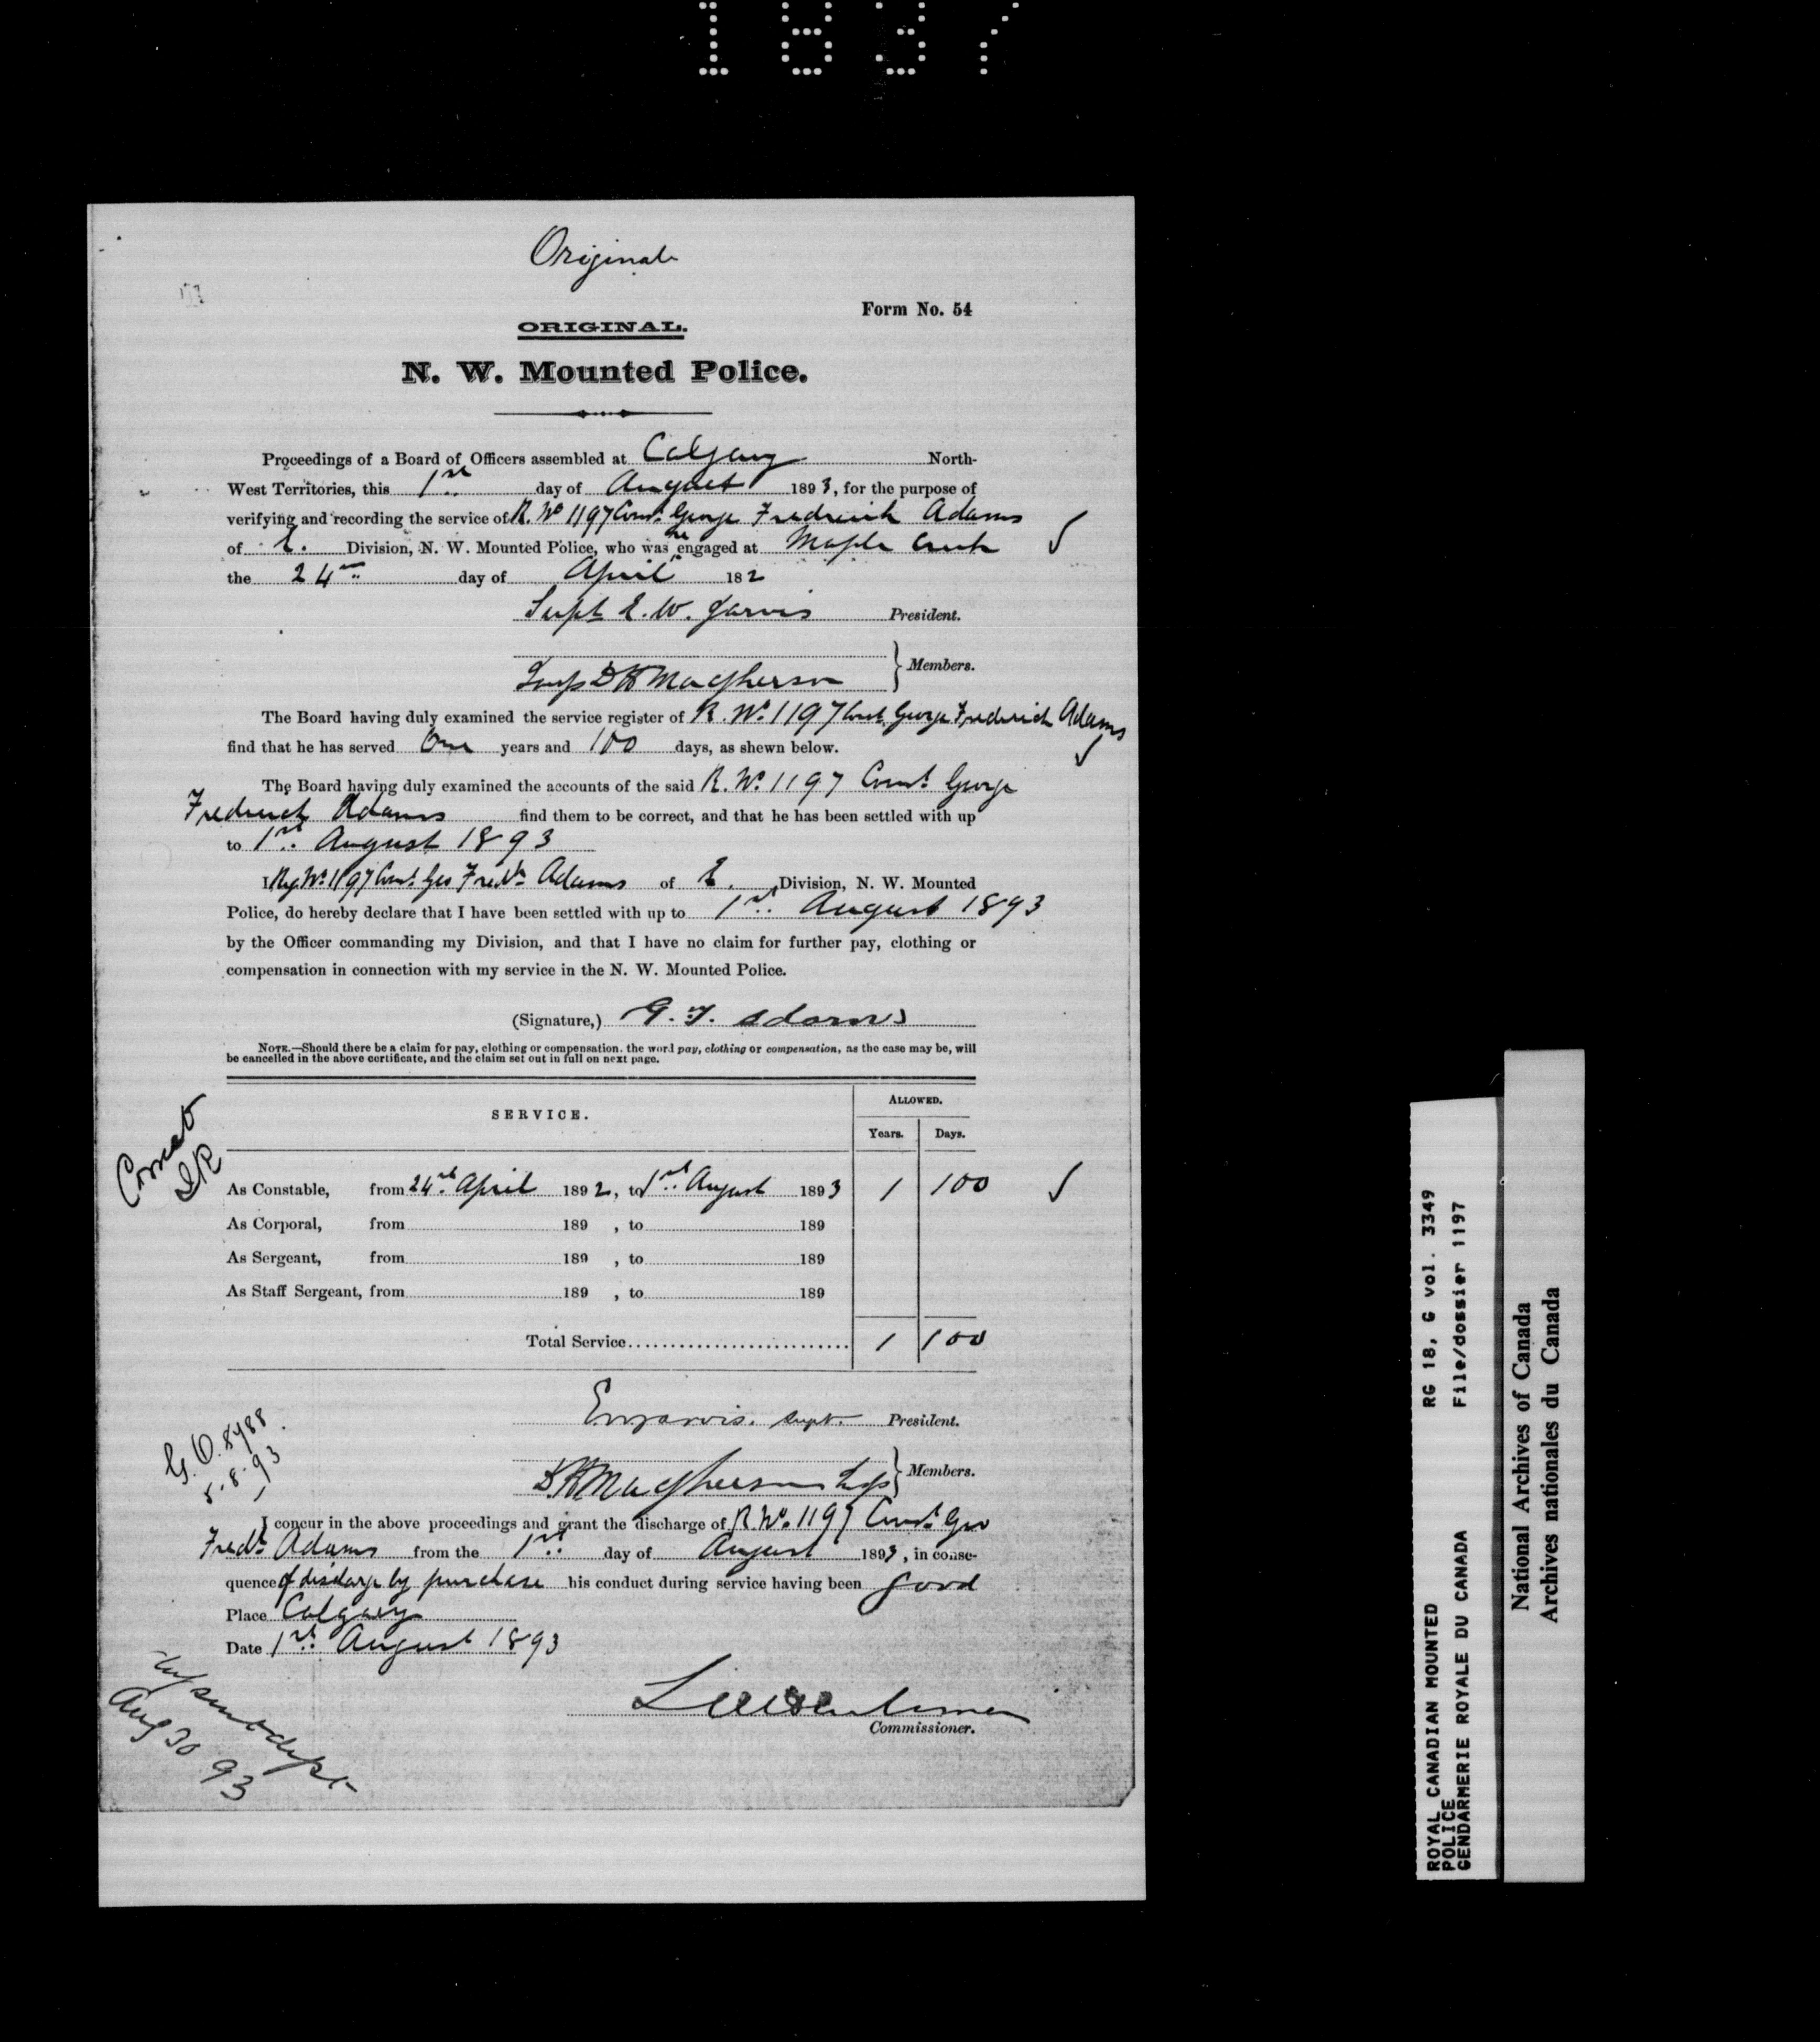 1837
Original
Form No. 54
ORIGINAL.
N. W. Mounted Police.
Proceedings of a Board of Officers assembled at Calgary North-
West Territories, this 1st day of August 1893, for the purpose of
verifying and recording the service of R. No 1197 Const. George Frederick Adams
of E. Division, N. W. Mounted Police, who was re engaged at Maple Creek
the 24th day of April 182
Supt E. W. Jarvis President.
Insp D H Macpherson Members.
The Board having duly examined the service register of R. No. 1197 Const. George Frederick Adams
find that he has served One years and 100 days, as shewn below.
The Board having duly examined the accounts of the said R. No. 1197 Const. George
Frederick Adams find them to be correct, and that he has been settled with up
to 1st August 1893
I Reg No. 1197 Const. Geo Fredk Adams of E. Division, N. W. Mounted
Police, do hereby declare that I have been settled with up to 1st August 1893
by the Officer commanding my Division, and that I have no claim for further pay, clothing or
compensation in connection with my service in the N. W. Mounted Police.
(Signature,) G. F. Adams
NOTE.—Should there be a claim for pay, clothing or compensation, the word pay, clothing or compensation, as the case may be, will
be cancelled in the above certificate, and the claim set out in full on next page.
SERVICE. ALLOWED.
Years. Days.
Correct
As Constable, from 24th April 1892, to 1st August 1893 1 100
As Corporal, from 189 , to 189
As Sergeant, from 189 , to 189
As Staff Sergeant, from 189 , to 189
Total Service 1 100
E W Jarvis. Supt. President.
G. O. 8488
5.8.93
D H Macpherson Insp Members.
I concur in the above proceedings and grant the discharge of R. No. 1197 Const. Geo
Fredk Adams from the 1st day of August 1893, in conse-
quence of discharge by purchase his conduct during service having been good
Place Calgary
Date 1st August 1893
Commissioner.
Aug 30 93
ROYAL CANADIAN MOUNTED
POLICE
GENDARMERIE ROYALE DU CANADA
RG 18, G vol. 3349
File/dossier 1197
National Archives of Canada
Archives nationales du Canada